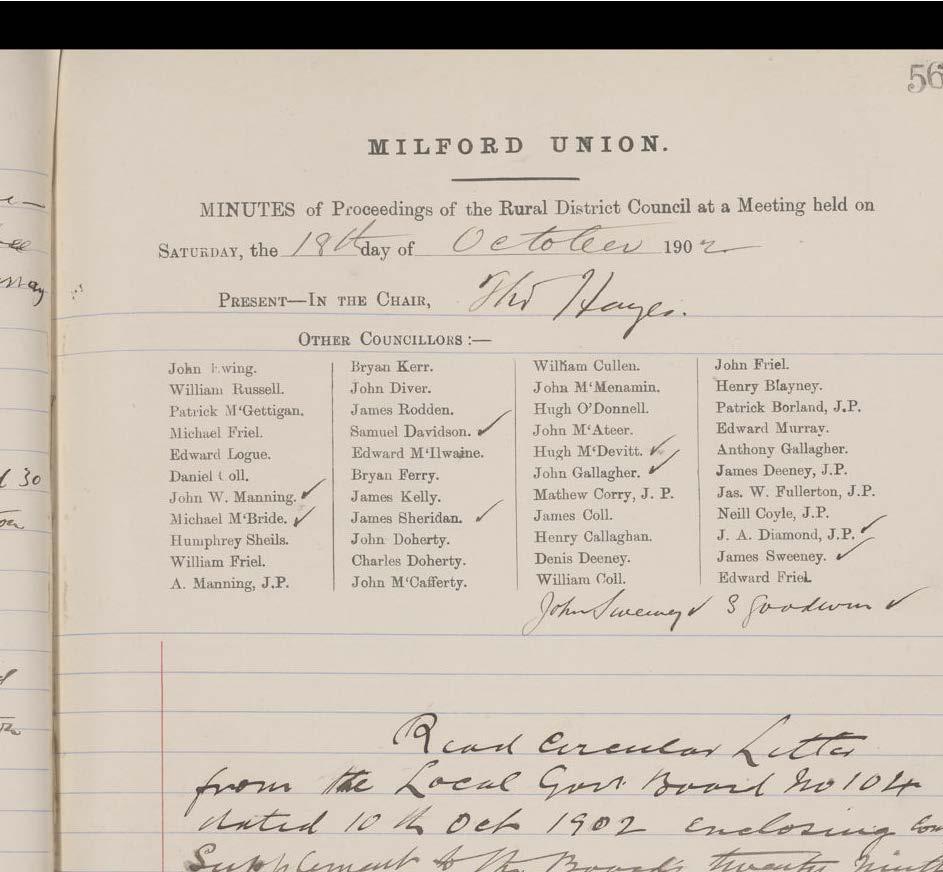 56
MILFORD UNION.
MINUTES of Proceedings of the Rural District Council at a Meeting held on
SATURDAY, the 18th day of October 1902
PRESENT—IN THE CHAIR, Thos Hayes.
OTHER COUNCILLORS :—
John Ewing.
William Russell.
Patrick M‘Gettigan.
Michael Friel.
Edward Logue.
Daniel Coll.
John W. Manning. ✓
Michael M‘Bride. ✓
Humphrey Sheils.
William Friel.
A. Manning, J.P.
Bryan Kerr.
John Diver.
James Rodden.
Samuel Davidson. ✓
Edward M‘Ilwaine.
Bryan Ferry.
James Kelly.
James Sheridan. ✓
John Doherty.
Charles Doherty.
John M‘Cafferty.
William Cullen.
John M‘Menamin.
Hugh O’Donnell.
John M‘Ateer.
Hugh M‘Devitt. ✓
John Gallagher. ✓
Mathew Corry, J. P.
James Coll.
Henry Callaghan.
Denis Deeney.
William Coll.
John Friel.
Henry Blayney.
Patrick Borland, J.P.
Edward Murray.
Anthony Gallagher.
James Deeney, J.P.
Jas. W. Fullerton, J.P.
Neill Coyle, J.P.
J. A. Diamond, J.P. ✓
James Sweeney. ✓
Edward Friel.
John Sweeney ✓ S Goodwin ✓
Read Circular Letter
from the Local Govt Board No 104
dated 10th Oct 1902 enclosing
Supplement to the Board's twenty ninth
30